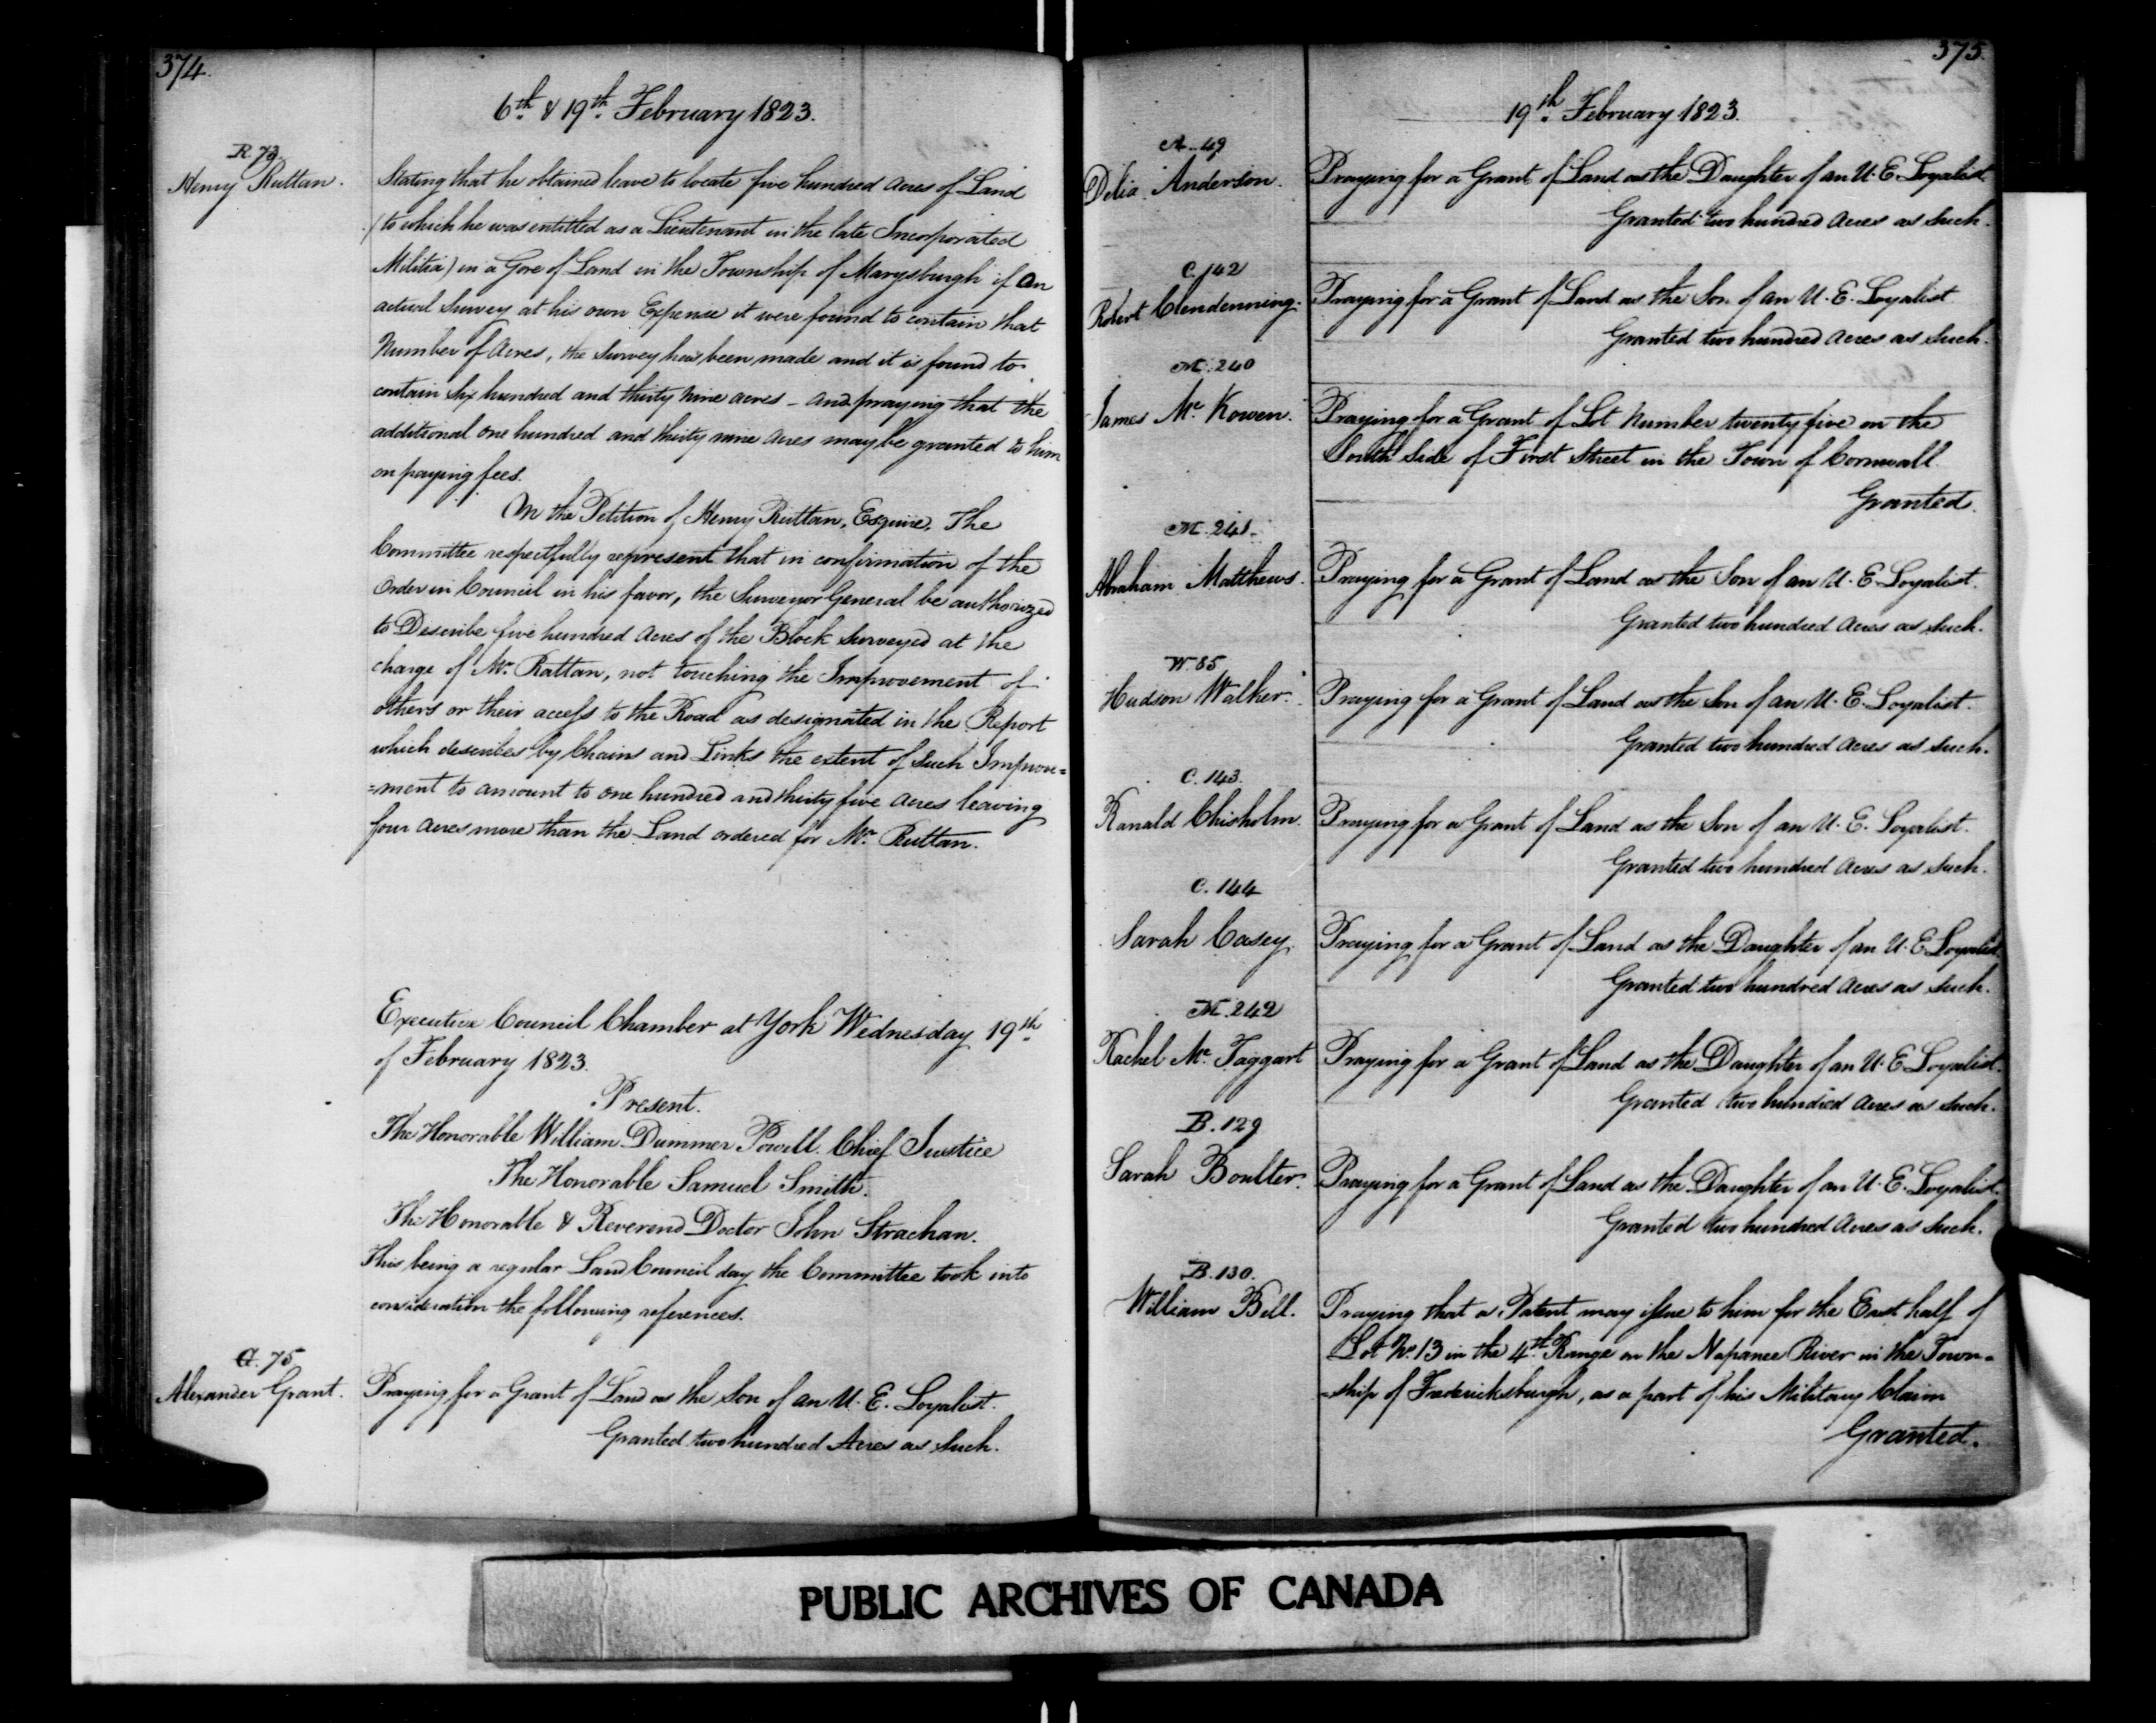 374.
6th. & 19th. February 1823.
R. 73
Henry Ruttan.
Stating that he obtained leave to locate five hundred Acres of Land
(to which he was entitled as a Lieutenant in the late Incorporated
Militia) in a Gore of Land in the Township of Marysburgh if an
actual Survey at his own Expense it were found to contain that
Number of Acres, the Survey has been made and it is found to
contain Six hundred and thirty nine acres – and praying that the
additional one hundred and thirty nine Acres may be granted to him
on paying fees.
On the Petition of Henry Ruttan, Esquire, The
Committee respectfully represent that in confirmation of the
Order in Council in his favor, the Surveyor General be authorized
to Describe five hundred Acres of the Block Surveyed at the
charge of Mr. Rattan, not touching the Improvement of
others or their access to the Road as designated in the Report
which describes by Chains and Links the extent of Such Improve=
=ment to amount to one hundred and thirty five Acres leaving
four Acres more than the Land ordered for Mr. Ruttan.
Executive Council Chamber at York Wednesday 19th.
of February 1823.
Present.
The Honorable William Dummer Powell. Chief Justice
The Honorable Samuel Smith.
The Honorable & Reverend Doctor John Strachan.
This being a regular Land Council day the Committee took into
consideration the following references.
G. 75
Alexander Grant.
Praying for a Grant of Land as the Son of an U. E. Loyalist.
Granted two hundred Acres as Such.
375.
19th. February 1823.
A. 49
Delia Anderson.
Praying for a Grant of Land as the Daughter of an U. E. Loyalist.
Granted two hundred Acres as Such.
C. 142
Robert Clendenning.
Praying for a Grant of Land as the Son of an U. E. Loyalist
Granted two hundred Acres as Such.
M. 240
James Mc. Kowen.
Praying for a Grant of Lot Number twenty five on the
South Side of First Street in the Town of Cornwall.
Granted.
M. 241.
Abraham Matthews.
Praying for a Grant of Land as the Son of an U. E. Loyalist.
Granted two hundred Acres as Such.
W. 85
Hudson Walker.
Praying for a Grant of Land as the Son of an U. E. Loyalist.
Granted two hundred Acres as Such.
C. 143.
Ranald Chisholm.
Praying for a Grant of Land as the Son of an U. E. Loyalist.
Granted two hundred Acres as Such.
C. 144
Sarah Casey.
Praying for a Grant of Land as the Daughter of an U. E. Loyalist
Granted two hundred Acres as Such.
M. 242
Rachel Mc. Taggart
Praying for a Grant of Land as the Daughter of an U. E. Loyalist.
Granted two hundred Acres as Such.
B. 129
Sarah Boulter.
Praying for a Grant of Land as the Daughter of an U. E. Loyalist.
Granted two hundred Acres as Such.
B. 130.
William Bell.
Praying that a Patent may issue to him for the East half of
Lot No. 13 in the 4th. Range on the Napanee River in the Town=
=ship of Fredericksburgh, as a part of his Military Claim
Granted.
PUBLIC ARCHIVES OF CANADA